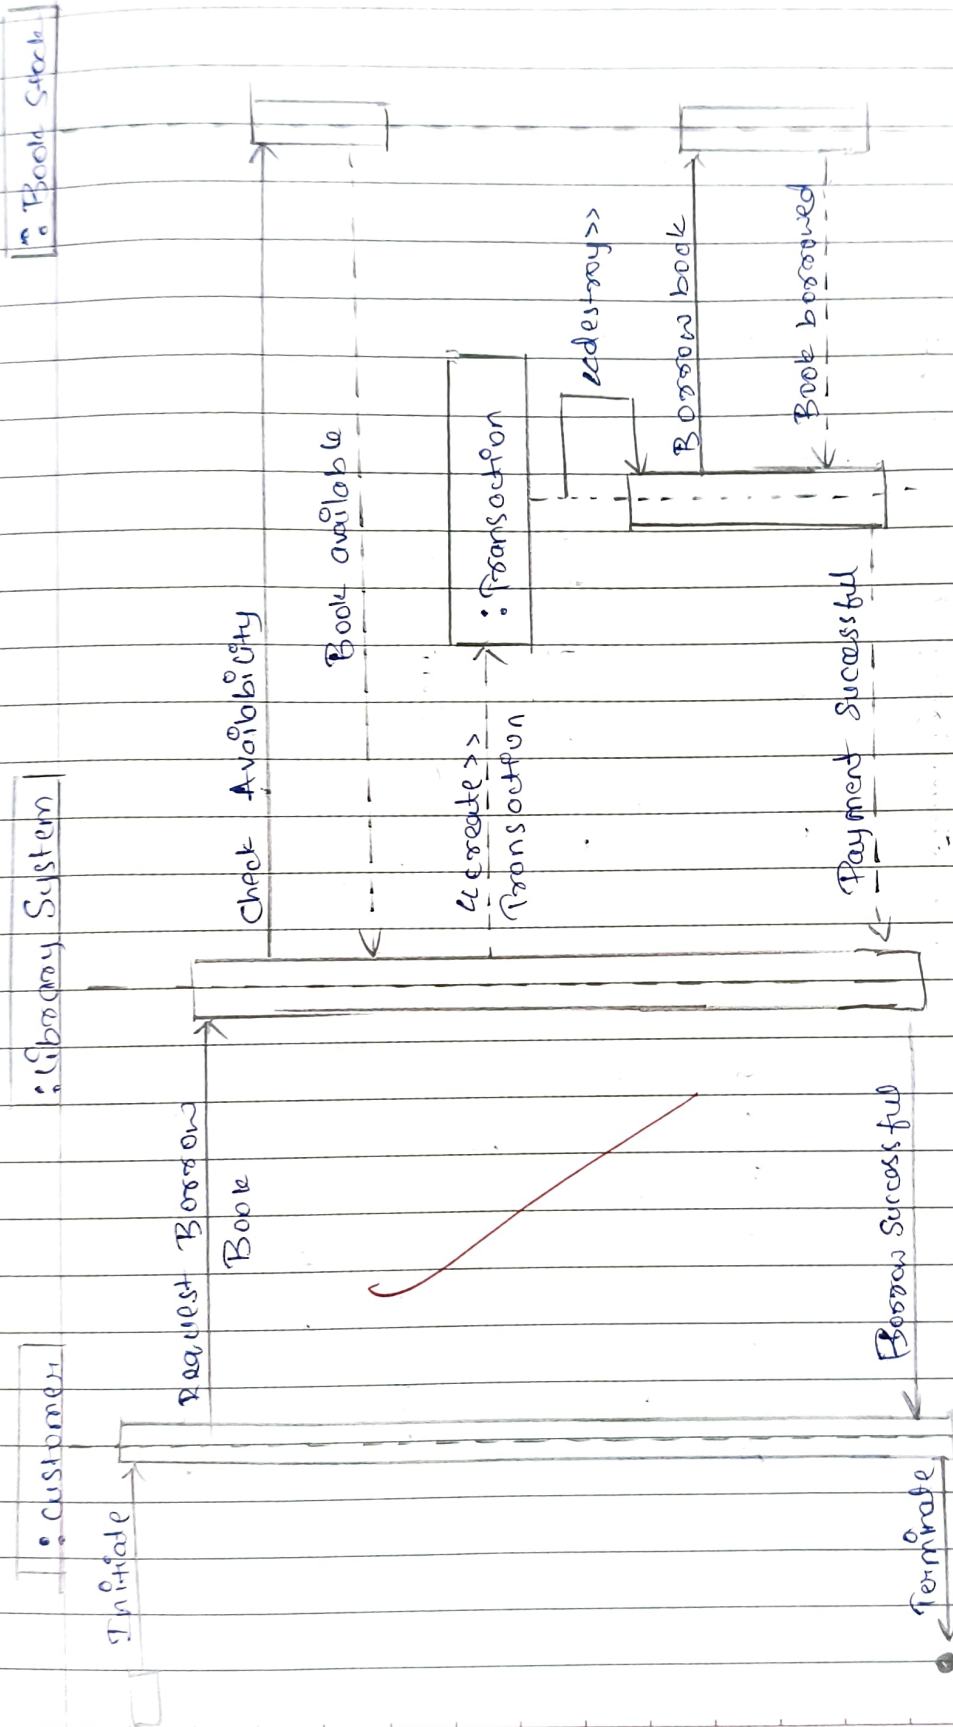 : Customer
: Library System
: Book Stock
Initiate
Request Borrow
Book
Check Availability
Book available
<<create>>
Transaction
: Transaction
<<destroy>>
Borrow book
Book borrowed
Payment Successful
Borrow Successful
Terminate